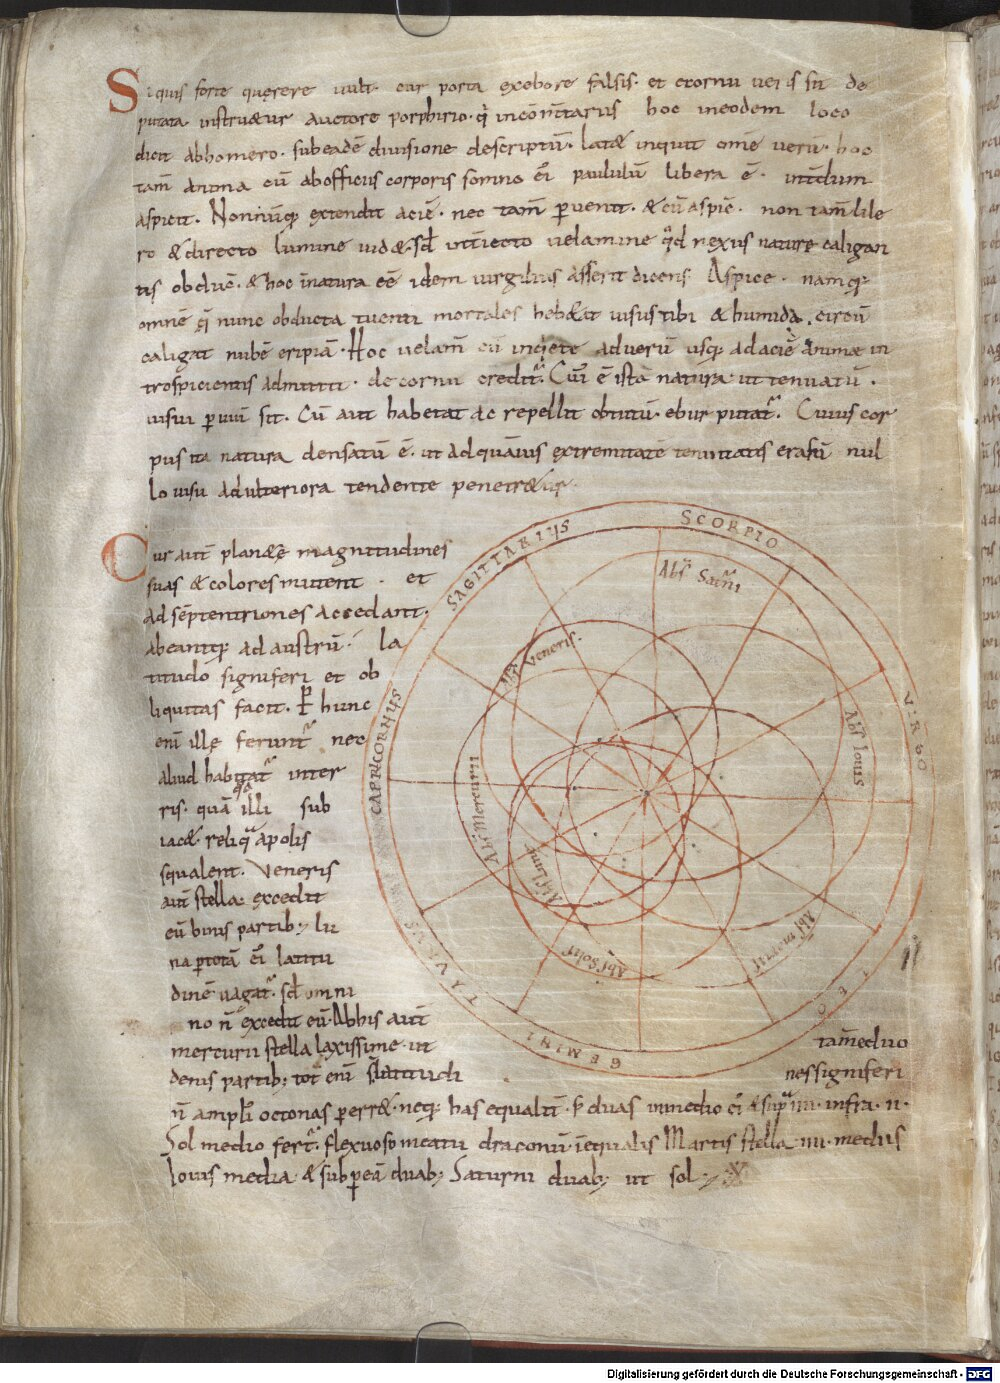 Siquis forte querere uult. cur porta exebore falsis. et ecornu ueris sit de
putata instruetur auctore porphirio. q̇ incōm̄tariis hoc ineodem loco
dicit abhomero. subeadē diuisione descriptū. Lat& inquit om̄e uerū. hoc
tam̄ anima cū abofficiis corporis somno ei paululū libera ē. int̄dum
aspicit. Nonnūq̄ extendit aciē. nec tam̄ ꝑuenit. & cū aspic̄. non tam̄ libe
ro & directo lumine uid&. sꝫ int̄iecto uelamine qd̄ nexus nature caligan
tis obduc̄. & hoc īnatura eē idem uirgilius asserit dicens. Aspice. namq;
omnē q̄ nunc obducta tuenti mortales heb&at uisus tibi & humida circū
caligat nubē eripiā. Hoc uelam̄ cū inqiete aduerū usq; adaciē animae in
trospicientis admittit. decornu credit᷑. Cui᷒ ē ista natura ut tenuatū.
uisui ꝑuiū sit. Cū aut̄ hebetat ac repellit obtutū. ebur putat᷑. Cuius cor
pus ita natura densatū ē. ut adquāuis extremitatē tenuitatis erasū nul
lo uisu adulteriora tendente penetr&ur.
Cur aut̄ planetę magnitudines
suas & colores mutent. et
adsēptentriones accedant.
abeantq; adaustrū. la
titudo signiferi et ob
liquitas facit. P hunc
eni illę ferunt᷑ nec
aliud habitat᷑ inter
ris. quā qd illi sub
iac&. reliq̄ apolis
squalent. Veneris
aut̄ stella excedit
eū binis partib; lu
na ꝑtotā ei latitu
dinē uagat᷑. sꝫ omni
no n̄ excedit eū. Abhis aut̄
mercurii stella laxissime. ut
denis partib; tot eni s̄ latitudi
tam̄educ
nessigniferi
n̄ ampli᷒ octonas ꝑerr&. neq; has equalit̄. s duas inmedio ei & supͣ iiii. infra. ii.
Sol medio fert᷑. flexuosо meatu draconū. īequalis Martis stella. iiii. medius
Iouis media & subꝑeā duab; Saturni duab; ut sol
SCORPIO
SAGITTARIUS
CAPRICORNUS
TAURUS
GEMINI
LEO
VIRGO
Abs̄ Saṫni
Abs̄ Veneris.
Abs̄ Iouis
Abs̄ Mercurii
Abs̄ Lunę
Abs̄ Solis
Abs̄ martis
Digitalisierung gefördert durch die Deutsche Forschungsgemeinschaft - DFG